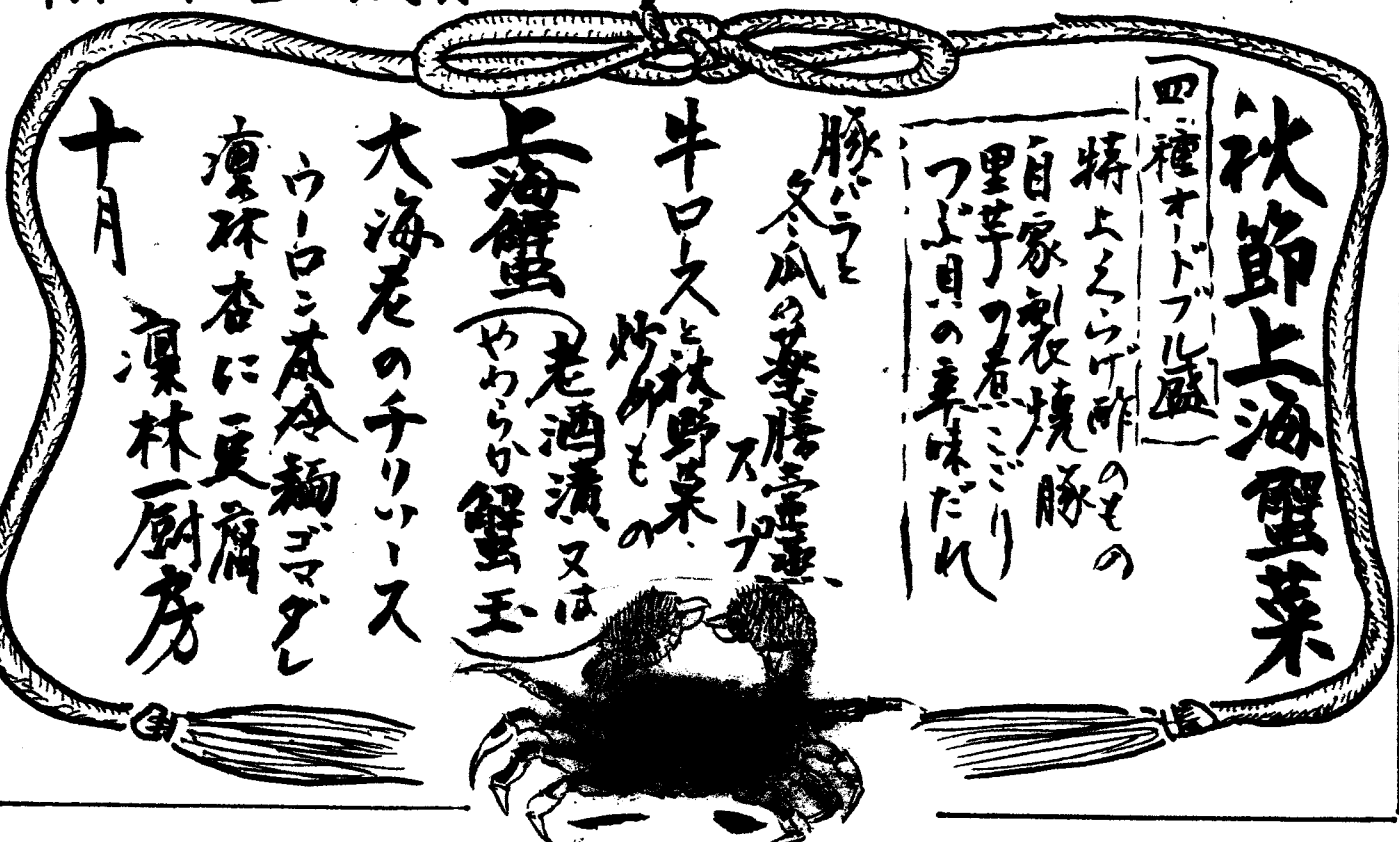 秋節上海蟹菜
四種オードブル盛
特上くらげ酢のもの
自家製焼豚
里芋の煮こごり
つぶ貝の辛味だれ
豚バラと
冬瓜の薬膳壺蒸
スープ
牛ロースと秋野菜
炒めもの
上海蟹
老酒漬又は
やわらか蟹玉
大海老のチリソース
ウーロン茶冷麺ゴマダレ
凛林杏仁豆腐
十月
凛林厨房